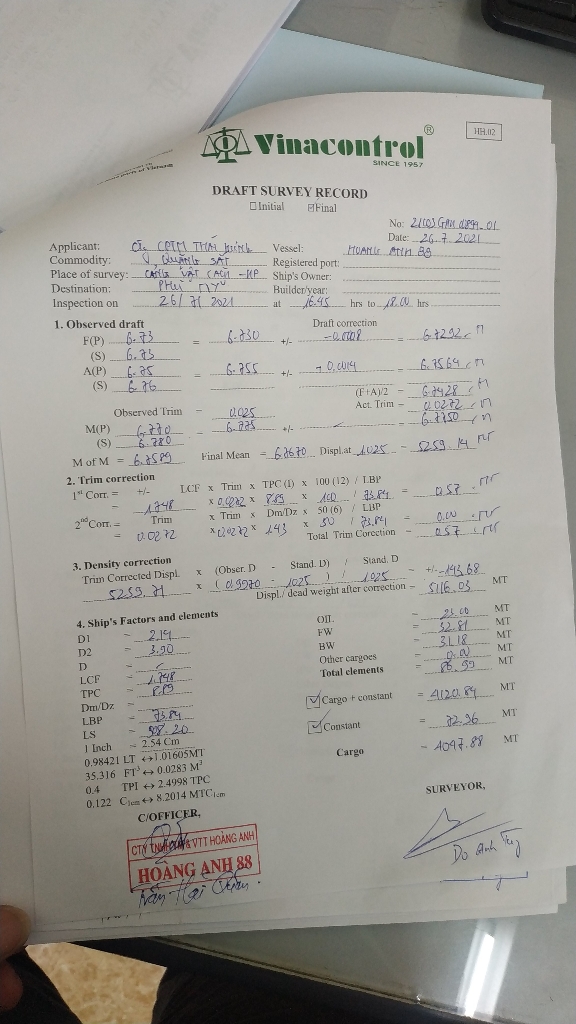 HH.02
Vinacontrol®
SINCE 1957
DRAFT SURVEY RECORD
☐ Initial ☑ Final
No:
Date: 26.7.2021
Applicant: CTy CPTM THÁI
Vessel: HOANG ANH 88
Commodity: QUẶNG SẮT
Registered port:
Place of survey: CẢNG VẬT CÁCH - HP
Ship's Owner:
Destination: PHÚ MỸ
Builder/year:
Inspection on 26/7/2021 at 16.45 hrs to 18.00 hrs
1. Observed draft
Draft correction
F(P) 6.73 = 6.730 +/- -0.0008 6.7292 M
(S) 6.73
A(P) 6.75 = 6.755 +/- +0.0014 6.7564 M
(S) 6.76
(F+A)/2 = 6.7428 M
Observed Trim = 0.025 Act. Trim = 0.0272 M
M(P) 6.770 = 6.775 +/- 6.7750 M
(S) 6.780
M of M = 6.7589 Final Mean = 6.7670 Displ.at 1.025 = 5259.14 MT
2. Trim correction
1st Corr. = +/- LCF x Trim x TPC (I) x 100 (12) / LBP
= 1.748 x 0.0272 x 8.89 x 100 / 73.84 = 0.57 MT
2nd Corr. = Trim x Trim x Dm/Dz x 50 (6) / LBP
= 0.0272 x 0.0272 x 143 x 50 / 73.84 = 0.00 MT
Total Trim Corection = 0.57 MT
3. Density correction
Trim Corrected Displ. x (Obser. D - Stand. D) / Stand. D
5259.71 x (0.9970 - 1.025) / 1.025 = +/- -143.68
Displ./ dead weight after correction = 5116.03 MT
4. Ship's Factors and elements
D1 = 2.14
OIL = 23.00 MT
D2 = 3.90
FW = 32.81 MT
D =
BW = 31.18 MT
LCF = 1.748
Other cargoes = 0.00 MT
TPC = 8.89
Total elements = 86.99 MT
Dm/Dz =
☑ Cargo + constant = 4120.84 MT
LBP = 73.84
LS = 908.20
☑ Constant = 22.96 MT
1 Inch = 2.54 Cm
0.98421 LT ↔ 1.01605MT
Cargo = 4097.88 MT
35.316 FT³ ↔ 0.0283 M³
0.4 TPI ↔ 2.4998 TPC
0.122 C1cm ↔ 8.2014 MTC1cm
C/OFFICER,
SURVEYOR,
CTY TNHH VTT HOÀNG ANH
HOÀNG ANH 88
Do Anh